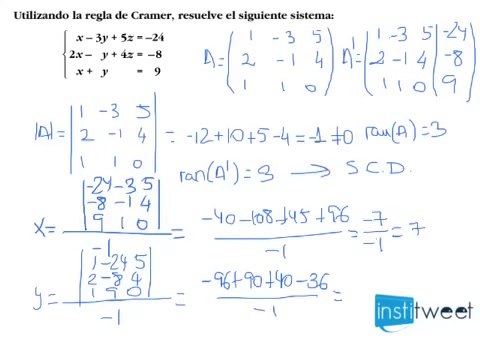 Utilizando la regla de Cramer, resuelve el siguiente sistema:
x – 3y + 5z = –24
2x – y + 4z = –8
x + y = 9
A = ( 1 -3 5
2 -1 4
1 1 0 )
A' = ( 1 -3 5 | -24
2 -1 4 | -8
1 1 0 | 9 )
|A| = | 1 -3 5
2 -1 4
1 1 0 | = -12+10+5-4 = -1 ≠ 0 ran(A) = 3
ran(A') = 3 → S.C.D.
x = | -24 -3 5
-8 -1 4
9 1 0 |
-1
= -40-108+45+96 / -1 = -7 / -1 = 7
y = | 1 -24 5
2 -8 4
1 9 0 |
-1
= -96+90+40-36 / -1 =
institweet